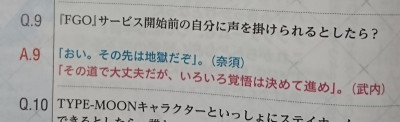 Q.9 『FGO』サービス開始前の自分に声を掛けられるとしたら？
A.9 「おい。その先は地獄だぞ」。（奈須）
「その道で大丈夫だが、いろいろ覚悟は決めて進め」。（武内）
Q.10 TYPE-MOONキャラクターといっしょにステイホー
できるとしたら、誰